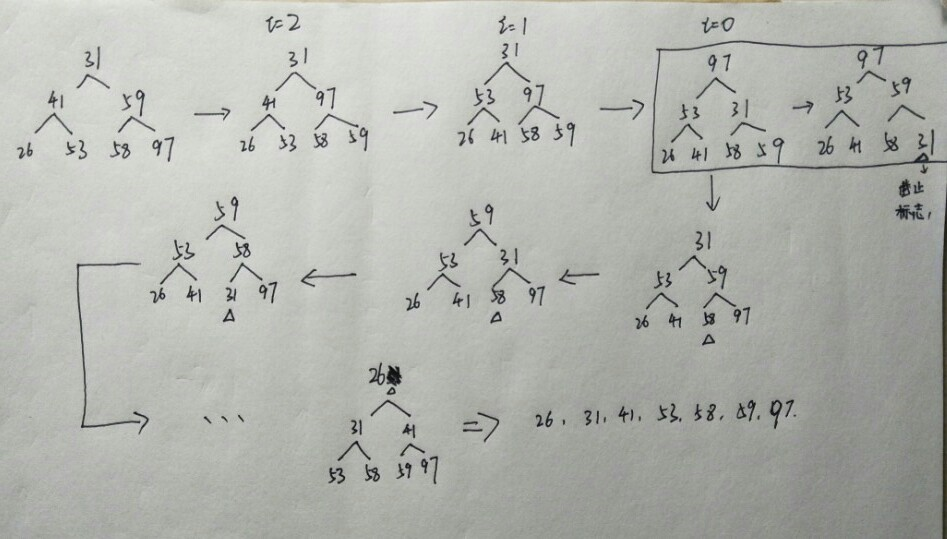 i=2 i=1 i=0
31 31 31 97 97
41 59 41 97 53 97 53 31 53 59
26 53 58 97 26 53 58 59 26 41 58 59 26 41 58 59 26 41 58 31
截止
标志,
59 59 31
53 58 53 31 53 59
26 41 31 97 26 41 58 97 26 41 58 97
26
... 31 41 => 26, 31, 41, 53, 58, 59, 97.
53 58 59 97